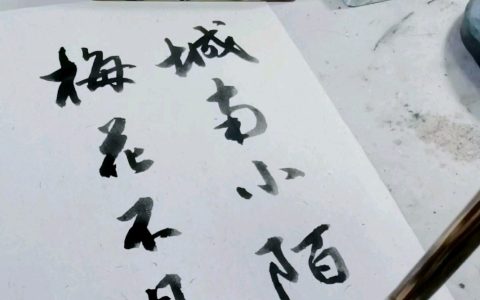 城南小陌
梅花不